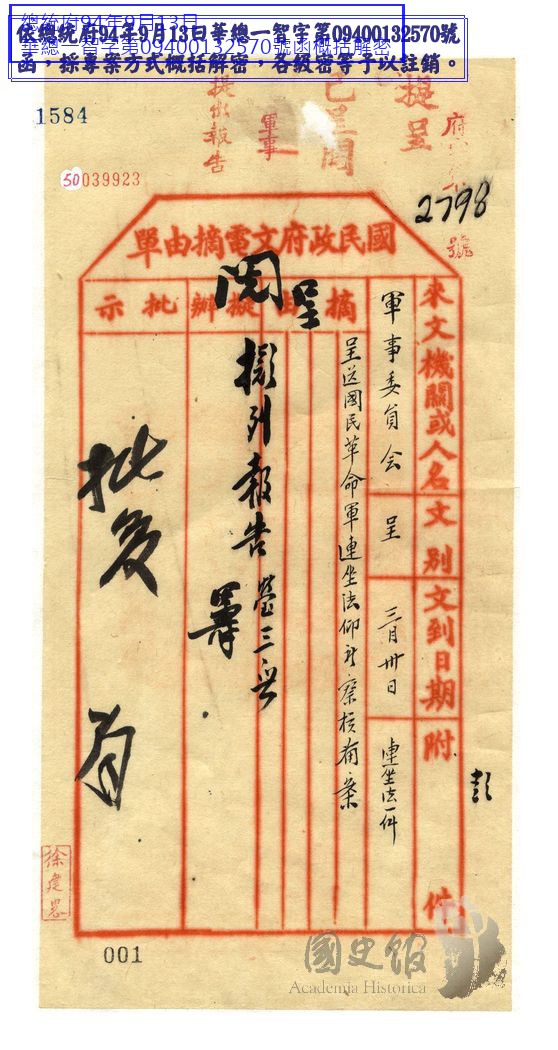 依總統府94年9月13日華總一智字第09400132570號
函，採專案方式概括解密，各級密等予以註銷。
總統府94年9月13日
華總一智字第09400132570號函概括解密
1584
50039923
提呈
已呈閱
軍事
提出報告
府
號
2798
國民政府文電摘由單
來文機關或人名
軍事委員会
文別
呈
文到日期
三月卅日
附件
連坐法一件
彭
摘由
呈送國民革命軍連坐法仰祈察核備案
擬辦
呈閱
擬列報告
批示
批交
徐建恩
001
國史館
Academia Historica